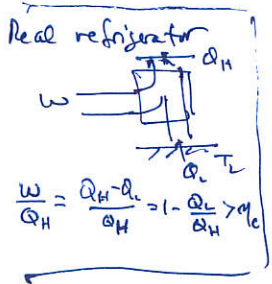 Real refrigerator
Q_H
W
Q_L T_L
W/Q_H = (Q_H - Q_L)/Q_H = 1 - Q_L/Q_H > η_c